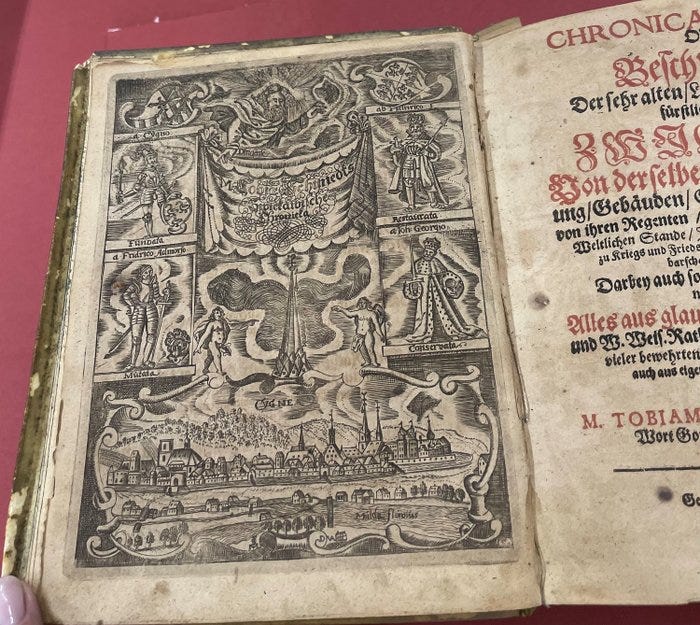 a Cÿgno.
ab Henrico.
M. Tobiæ Schmiedts
Cygneische
Chronica
Fundata
Restaurata
à Fridrico Admorso
à Joh Georgio.
Mutata
Conservata
CYGNE
Mulda fluvius
CHRONICA
Besch
Der sehr alten/ L
fürstli
ZWI
Von derselbe
ung/ Gebäuden/
von ihren Regenten
Weltlichen Stande/
zu Kriegs und Frieds
barsch
Darbey auch so
Alles aus glau
und W. Weis. Rath
vieler bewehrten
auch aus eige
M. TOBIAM
Wort Go
Ge